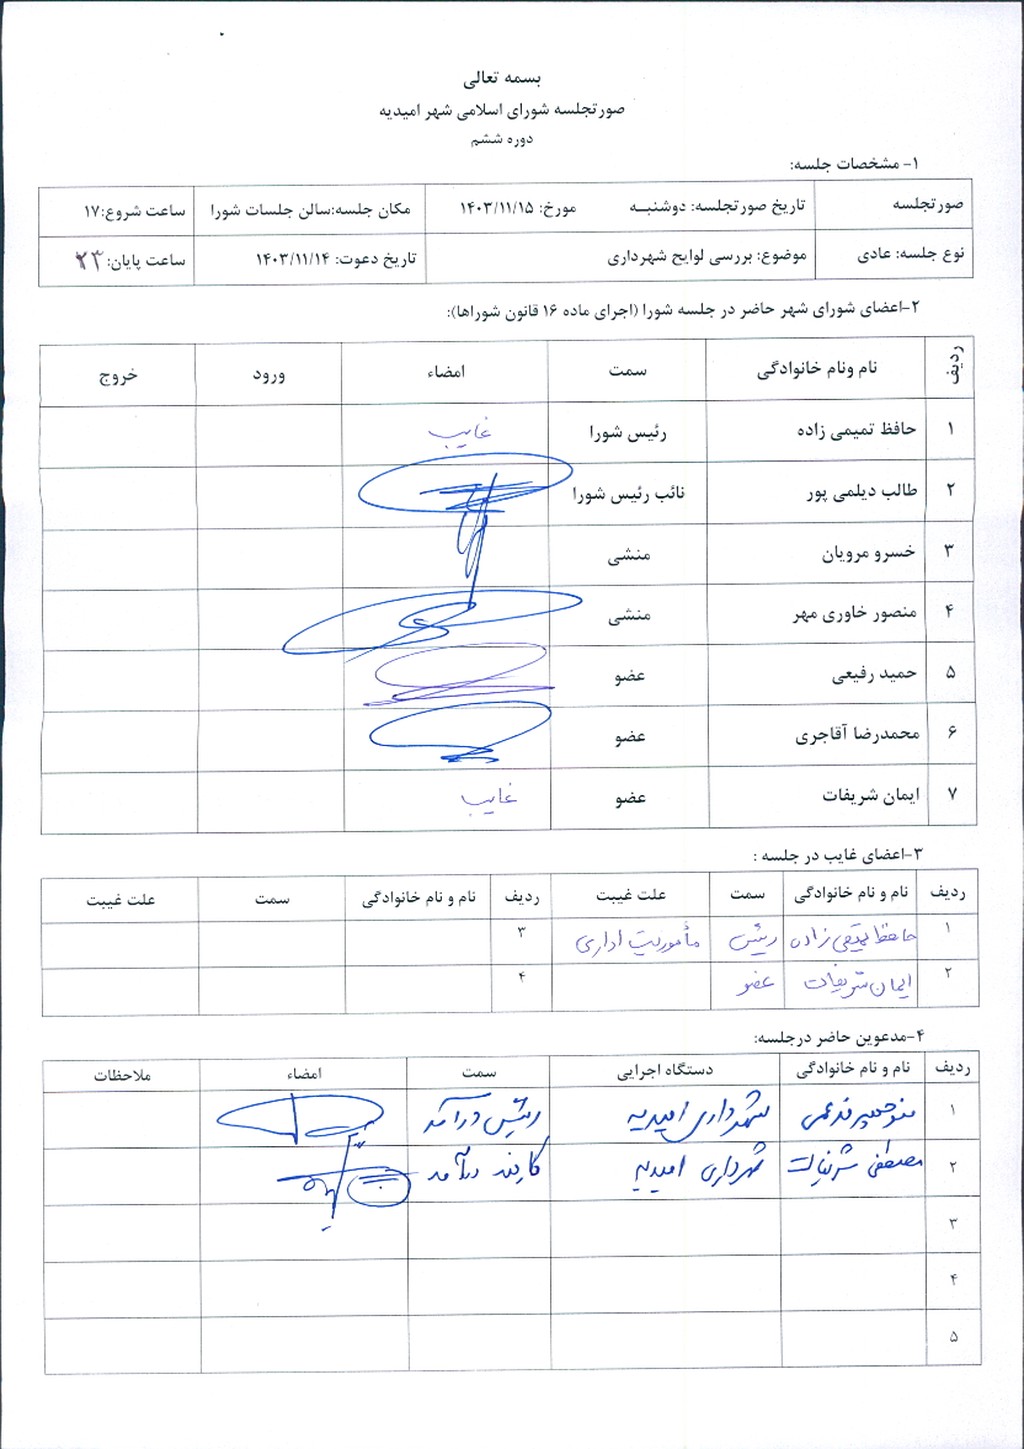 بسمه تعالی
صورتجلسه شورای اسلامی شهر امیدیه
دوره ششم
۱- مشخصات جلسه:
صورتجلسه تاریخ صورتجلسه: دوشنبـه مورخ: ۱۴۰۳/۱۱/۱۵ مکان جلسه:سالن جلسات شورا ساعت شروع:۱۷
نوع جلسه: عادی موضوع: بررسی لوایح شهرداری تاریخ دعوت: ۱۴۰۳/۱۱/۱۴ ساعت پایان: ۲۳
۲-اعضای شورای شهر حاضر در جلسه شورا (اجرای ماده ۱۶ قانون شوراها):
ردیف نام ونام خانوادگی سمت امضاء ورود خروج
۱ حافظ تمیمی زاده رئیس شورا غایب
۲ طالب دیلمی پور نائب رئیس شورا
۳ خسرو مرویان منشی
۴ منصور خاوری مهر منشی
۵ حمید رفیعی عضو
۶ محمدرضا آقاجری عضو
۷ ایمان شریفات عضو غایب
۳-اعضای غایب در جلسه :
ردیف نام و نام خانوادگی سمت علت غیبت ردیف نام و نام خانوادگی سمت علت غیبت
۱ حافظ تمیمی زاده رئیس مأموریت اداری ۳
۲ ایمان شریفات عضو ۴
۴-مدعوین حاضر درجلسه:
ردیف نام و نام خانوادگی دستگاه اجرایی سمت امضاء ملاحظات
۱ شهرداری امیدیه رئیس درآمد
۲ مصطفی شریفات شهرداری امیدیه کارمند درآمد
۳
۴
۵